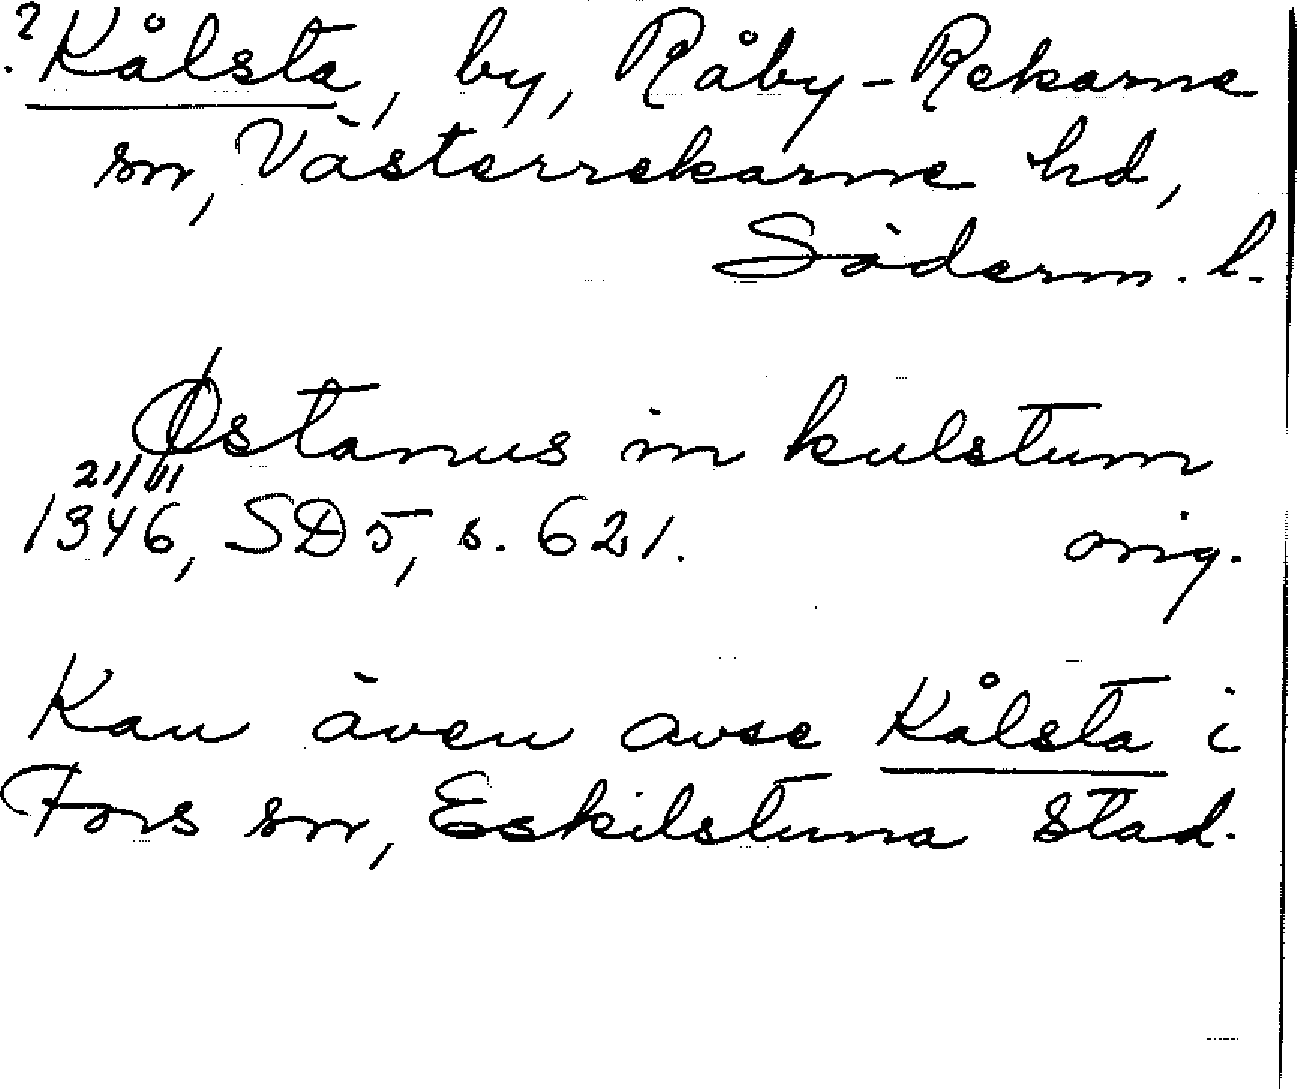 ? Kålsta, by, Råby-Rekarne
sn, Västerrekarne hd,
Söderm. l.
Østanus in kulstum
21/VI
1346, SD 5, s. 621. orig.
Kan även avse Kålsta i
Fors sn, Eskilstuna stad.